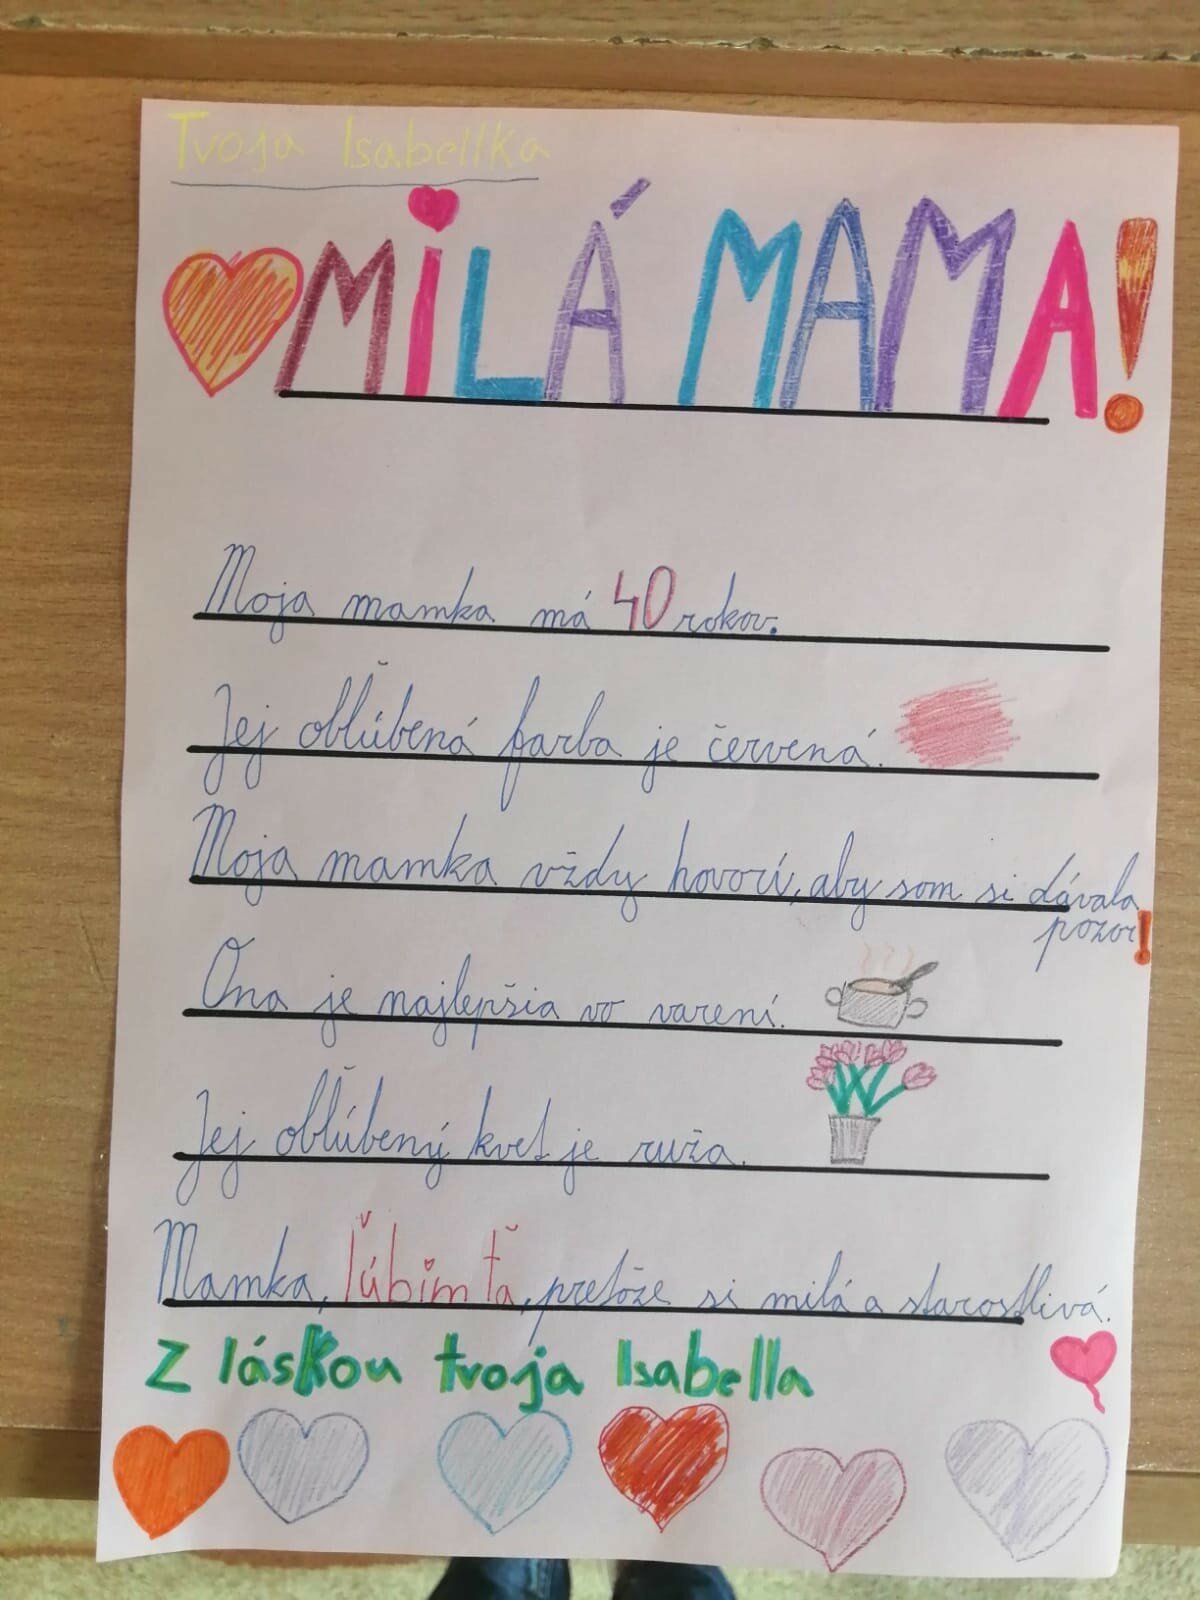 Tvoja Isabellka
MILÁ MAMA!
Moja mamka má 40 rokov.
Jej obľúbená farba je červená.
Moja mamka vždy hovorí, aby som si dávala
pozor!
Ona je najlepšia vo varení.
Jej obľúbený kvet je ruža.
Mamka, ľúbim ťa, pretože si milá a starostlivá.
Z láskou tvoja Isabella